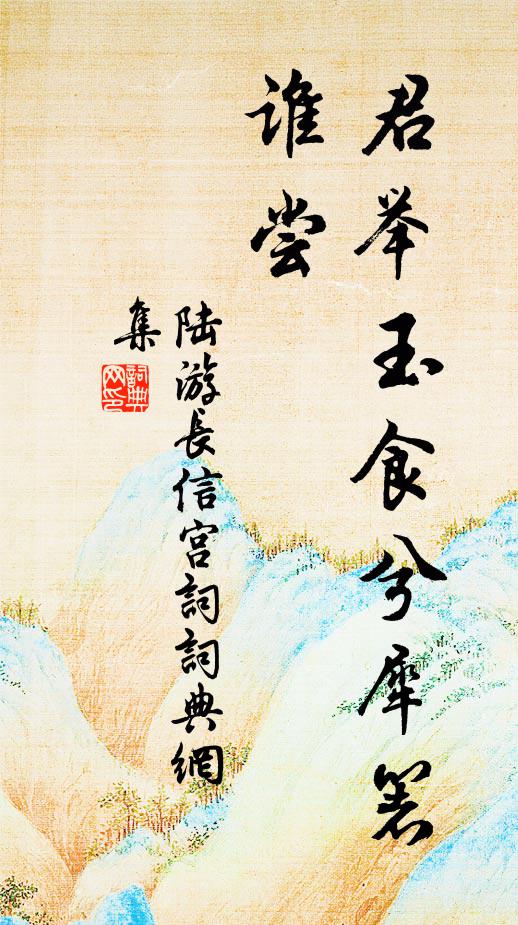 君举玉食兮犀箸
谁尝
陆游長信宫詞詞典網
集
詞典
网印